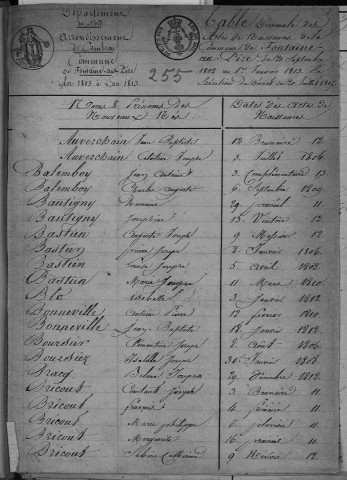 Département
du Nord
Arrondissement
de Cambrai
Commune
de Fontaine-au-Pire
An 1803 à l'an 1813
255
Table Décennale des
Actes de Naissances de la
Commune de Fontaine
au Pire du 21 Septembre
1802 au 1er Janvier 1813.
Noms & Prénoms des
Nouveaux Nés
Dates des Actes de
Naissances
Auverchain Jean Baptiste 12 Brumaire 12.
Auverchain Célestine Joseph 3 Juillet 1806.
Balemboy 3 Complémentaire 13.
Balemboy Charles Auguste 6 Septembre 1809.
Bantigny 29 prairial 11.
Bantigny Joséphine 13 Ventôse 12.
Bastien Auguste Joseph 9 Messidor 12.
Bastien Joseph 2 Janvier 1806.
Bastien Louise Joseph 5 Avril 1808.
Bastien Marie Joseph 11 Mars 1810.
Blo Isabelle 3 Janvier 1812.
Bonneville Antoine Pierre 12 février 1810.
Bonneville Jean Baptiste 18 Janvier 1812.
Bourdier Joseph 2 Août 1806.
Bourdiez Isabelle Joseph 30 Janvier 1808.
Bracq Joseph 29 Décembre 1812.
Bricout Constant Joseph 3 Brumaire 11.
Bricout François 4 frimaire 11.
Bricout Marie philippe 6 pluviôse 11.
Bricout Marguerite 16 prairial 11.
Bricout Catherine 9 Nivôse 12.